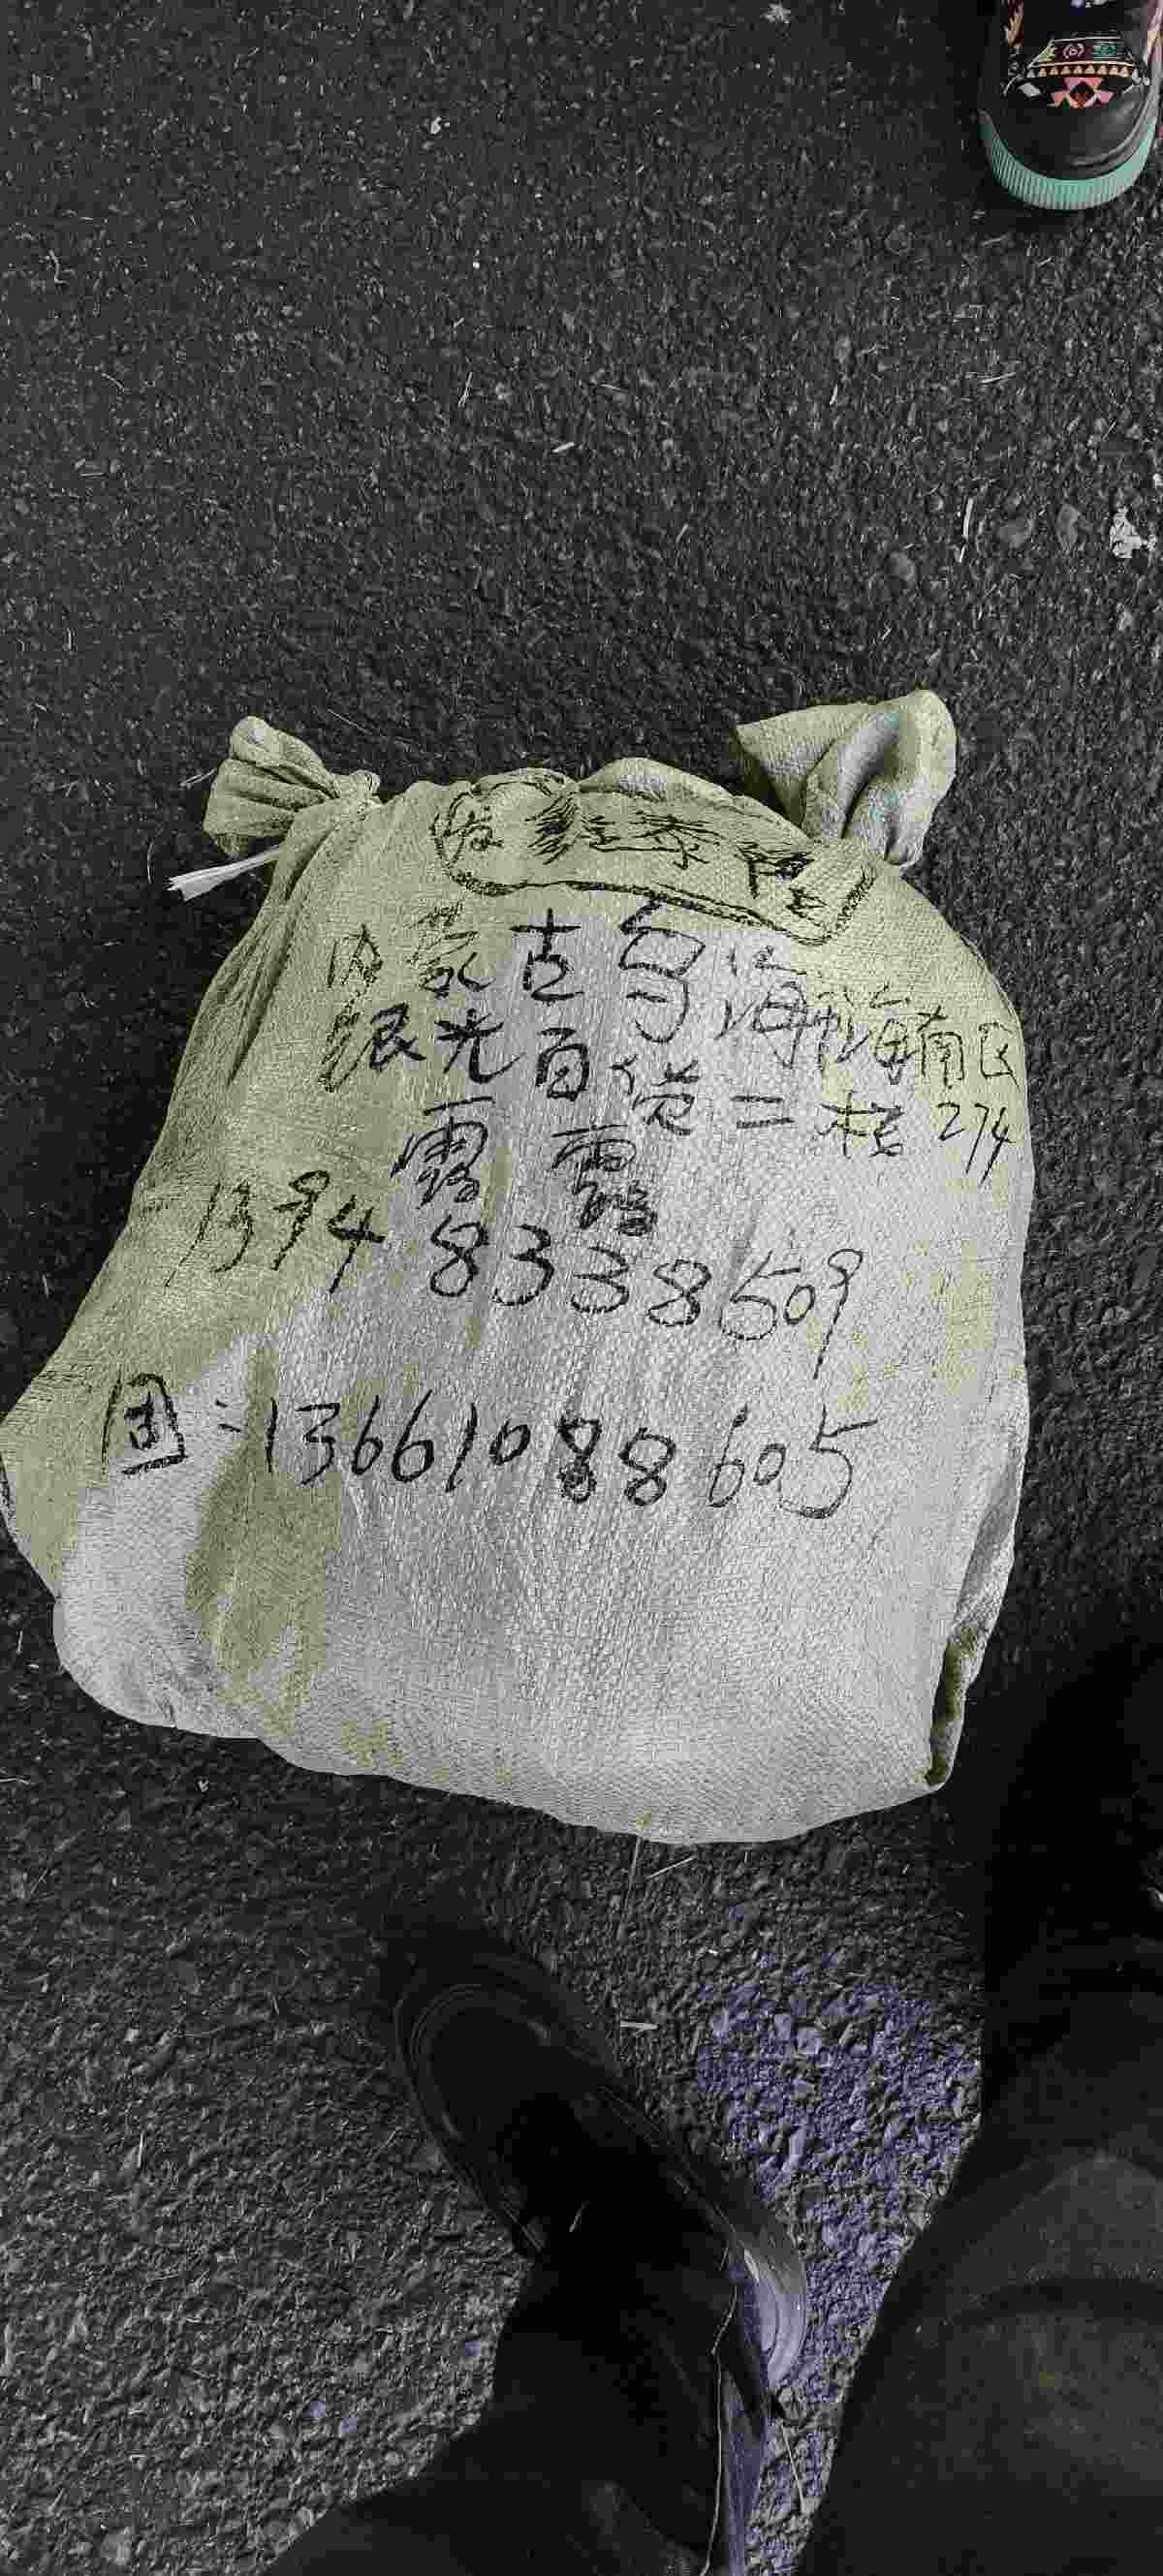 内蒙古乌海市海南区
银光百货二楼274
露露
13948338509
固:13661088605